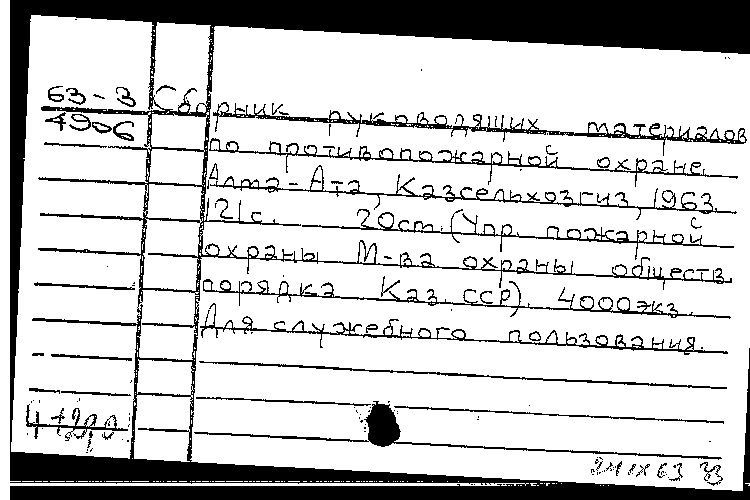 63-3 Сборник руководящих материалов
4906 по противопожарной охране.
Алма-Ата, Казсельхозгиз, 1963.
121с. 20см. (Упр. пожарной
охраны М-ва охраны обществ.
порядка Каз. ССР). 4000экз.
Для служебного пользования.
24 IX 63